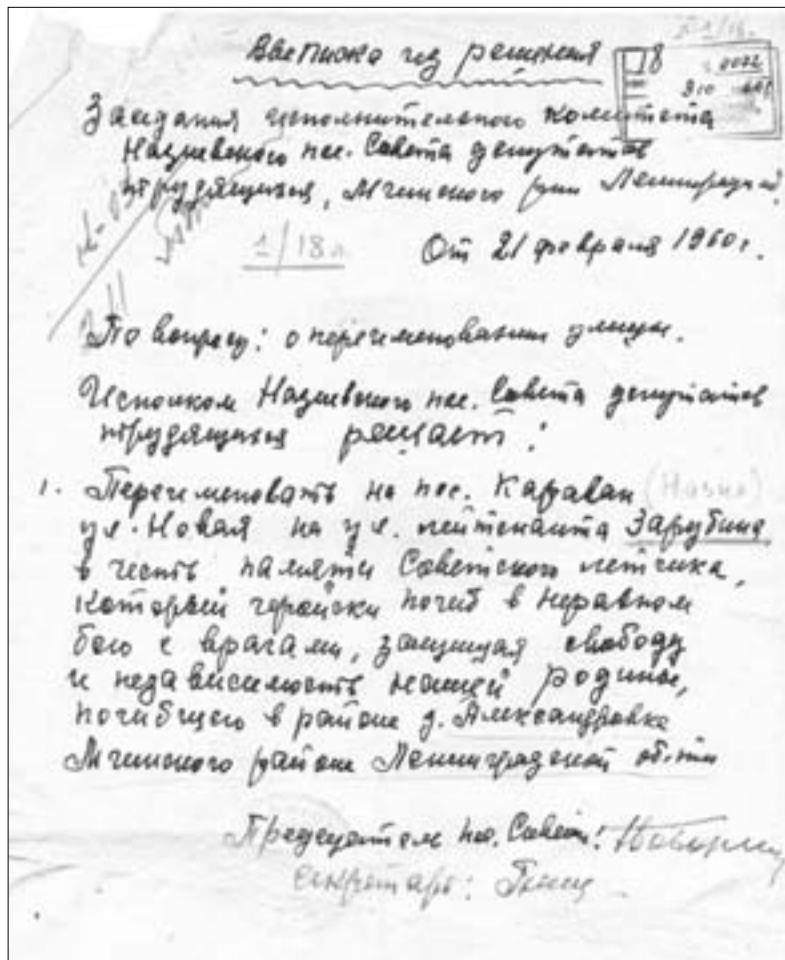 Выписка из решения
Заседания исполнительного комитета
Назиевского пос. Совета депутатов
трудящихся, Мгинского р-на Ленинград.
1/18 л
От 21 февраля 1960 г.
По вопросу: о переименовании улицы.
Исполком Назиевского пос. Совета депутатов
трудящихся решает:
1. Переименовать на пос. Караван (Назия)
ул. Новая на ул. лейтенанта Зарубина
в честь памяти Советского летчика,
который геройски погиб в неравном
бою с врагами, защищая свободу
и независимость нашей родины,
погибшего в районе д. Александровка
Мгинского района Ленинградской об-сти
Председатель пос. Совета:
Секретарь: